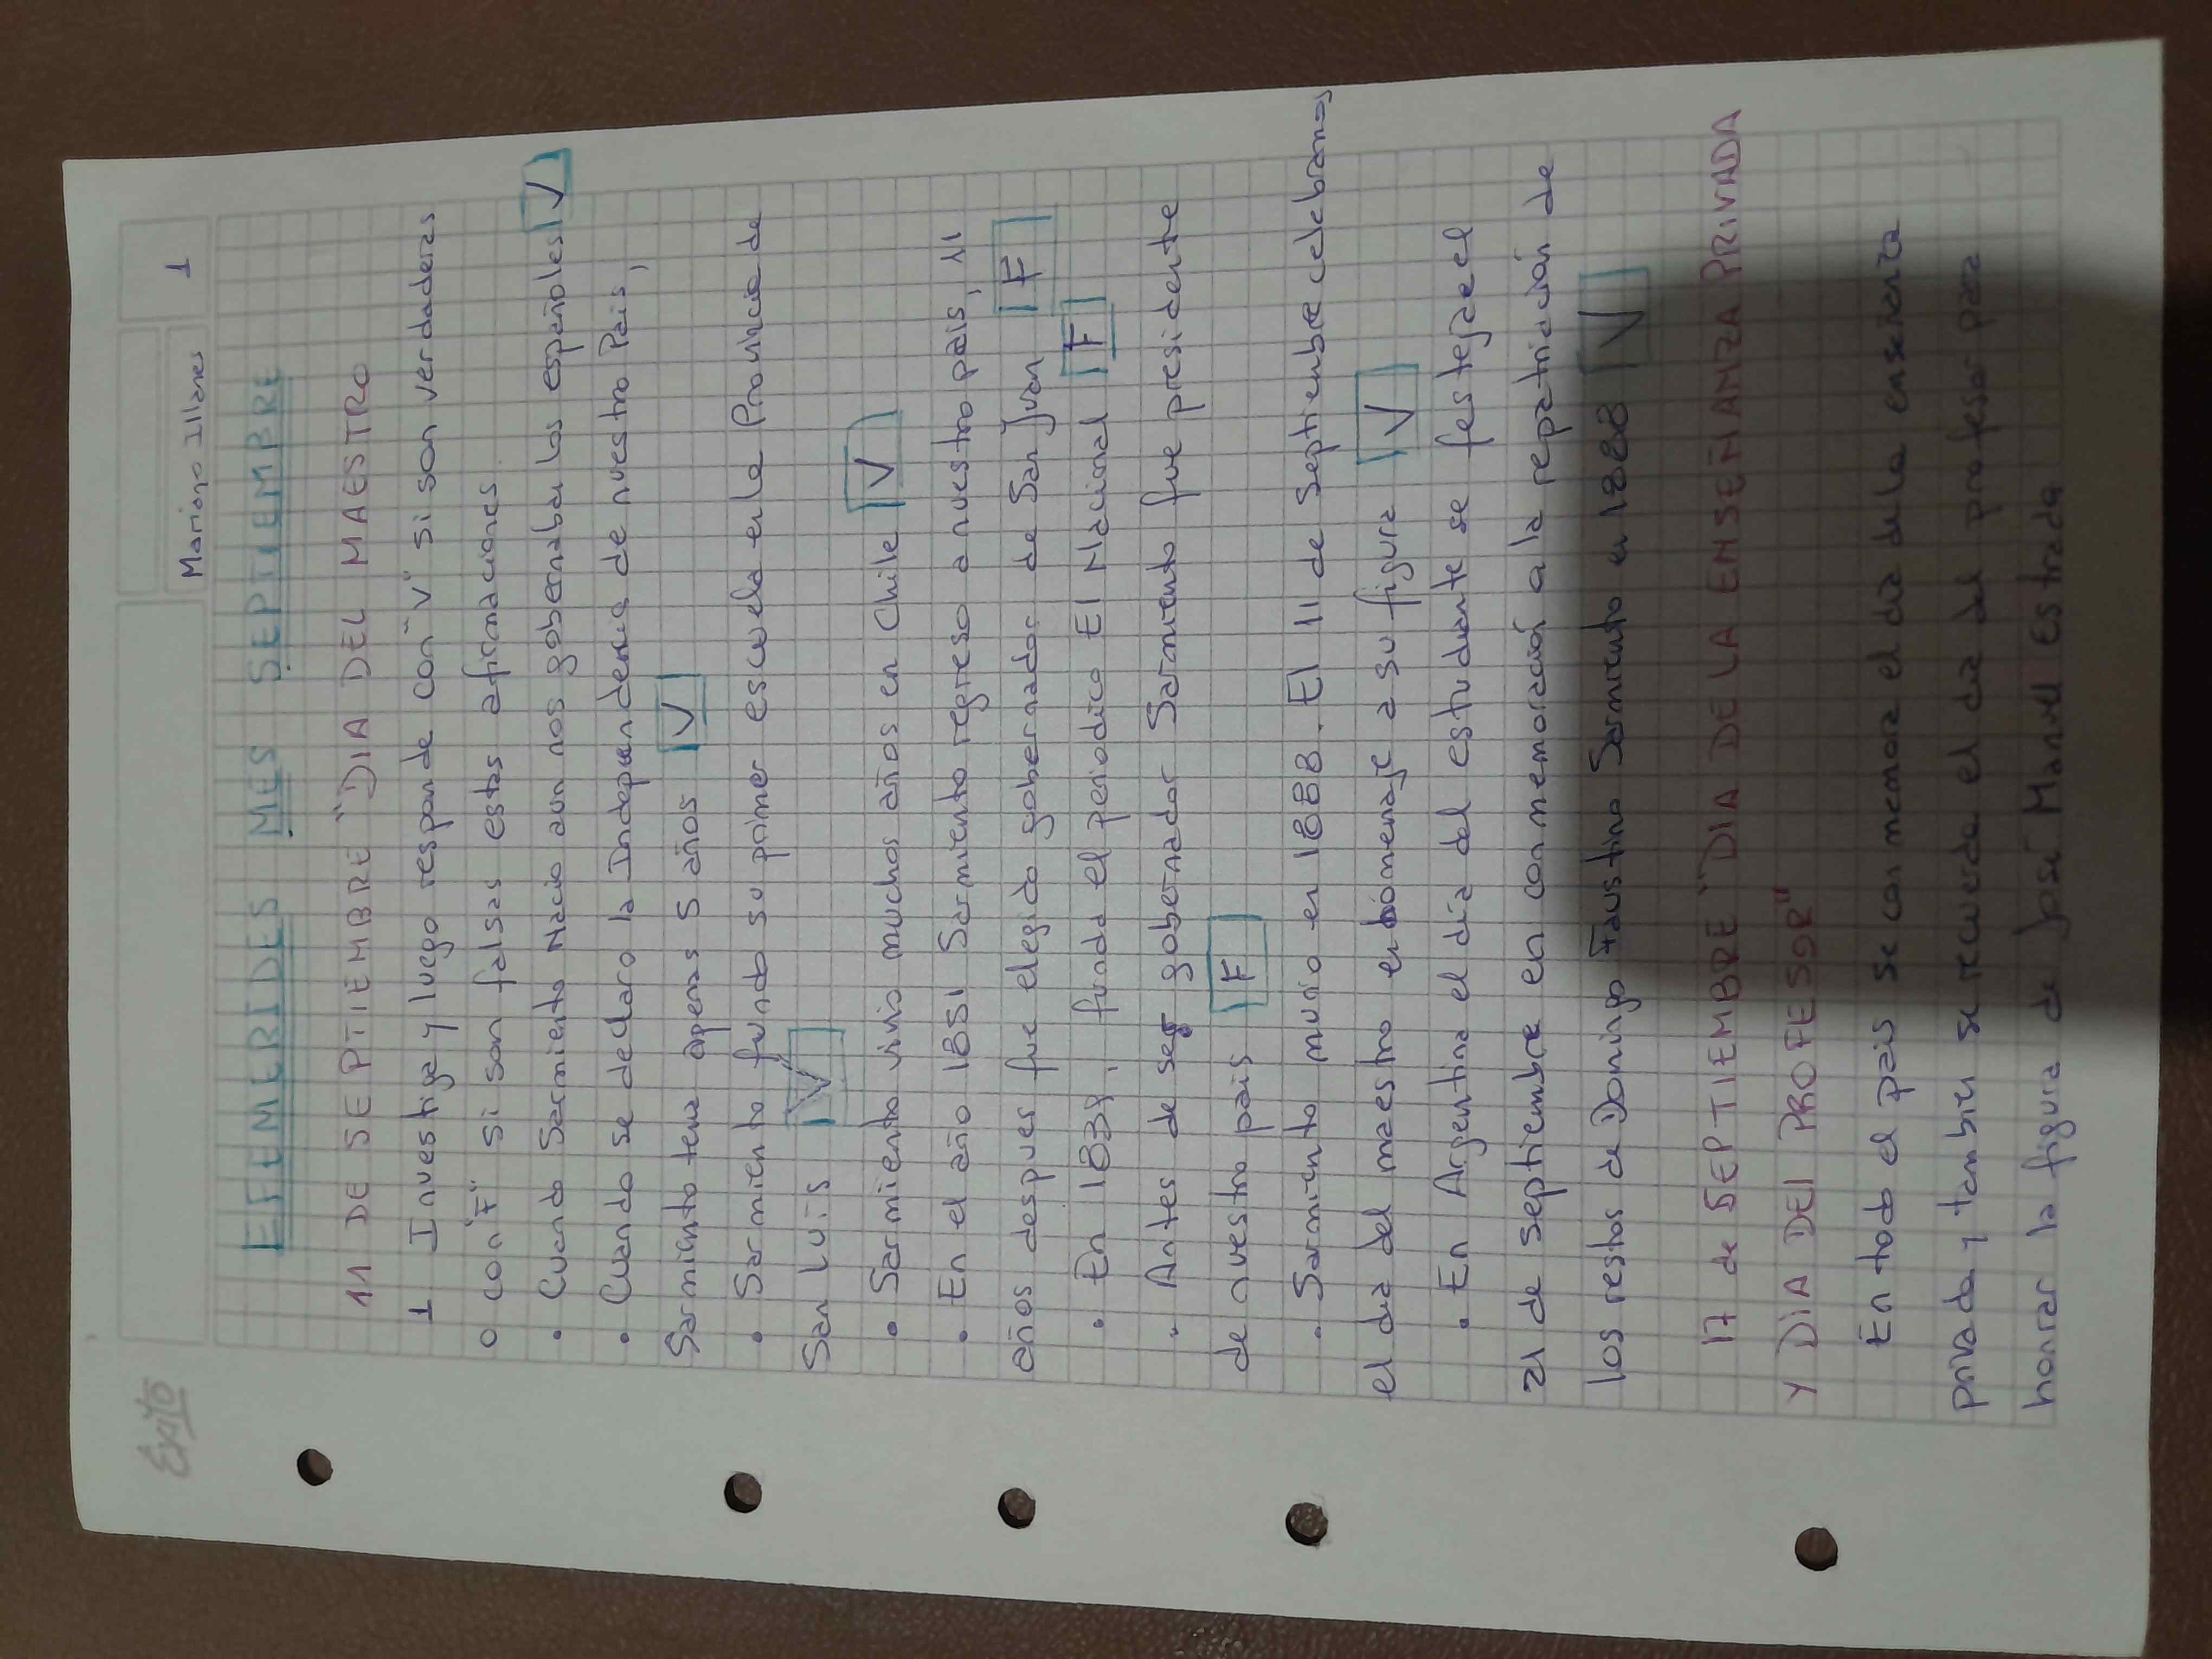 Exito
Mariano Illanes
1
EFEMERIDES MES SEPTIEMBRE
11 DE SEPTIEMBRE "DIA DEL MAESTRO
1 Investiga y luego responde con "V" si son verdaderas
o con "F" si son falsas estas afirmaciones.
• Cuando Sarmiento Nacio aun nos gobernaban los españoles V
• Cuando se declaro la Independencia de nuestro Pais,
Sarmiento tenia apenas 5 años V
• Sarmiento fundo su primer escuela en la Provincia de
San Luis V
• Sarmiento vivio muchos años en Chile V
• En el año 1851 Sarmiento regreso a nuestro pais, 11
años despues fue elegido gobernador de San Juan F
• En 1839, funda el periodico El Nacional F
• Antes de ser gobernador Sarmiento fue presidente
de nuestro pais F
• Sarmiento murio en 1888. El 11 de Septiembre celebramos
el dia del maestro en homenaje a su figura V
• En Argentina el día del estudiante se festeja el
21 de septiembre en conmemoración a la repatriación de
los restos de Domingo Faustino Sarmiento en 1888 V
17 de SEPTIEMBRE "DIA DE LA ENSEÑANZA PRIVADA
Y DIA DEl PROFESOR"
En todo el pais se conmemora el dia de la enseñanza
privada y tambien se recuerda el dia del profesor para
honrar la figura de José Manuel Estrada